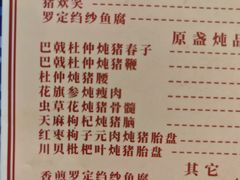 猪欢笑
罗定绉纱鱼腐
原盏炖品
巴戟杜仲炖猪春子
巴戟杜仲炖猪鞭
杜仲炖猪腰
花旗参炖瘦肉
虫草花炖猪骨髓
天麻枸杞炖猪脑
红枣枸子元肉炖猪胎盘
川贝枇杷叶炖猪胎盘
其它
香煎罗定绉纱鱼腐